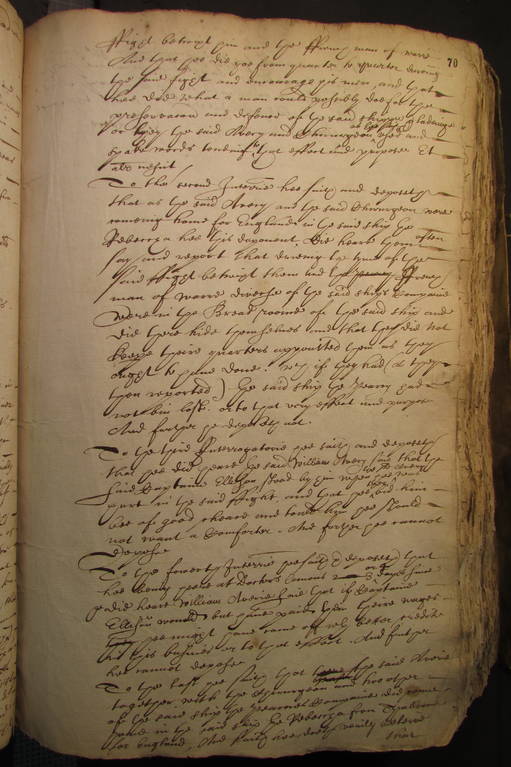 70
ffight betwixt him and the ffrench man of warre
And that hee did goe from quarter to quarter during
the said fight and encourage his men, and that
hee did what a man could possibly doe for the
preservacion and defence of the said shipp
or they the said Avery and Chirurgeon used and
spake words tending to that effect and purpose Et
als nescit
To the second Interrie hee saith and deposeth
that as the said Avery and the said Chirurgeon were
coming home for England in the said ship the
Rebecca hee this deponent did heare them often
say and report that during the tyme of the
said ffight betwixt them and the ffrench
man of warre diverse of the said ships Companie
were in the Bread roome of the said ship and
did there hide themselves and that they did not
keepe theire quarters appointed them as they
ought to have done. And if they had (as they
then reported) the said ship the hearry had
not bin lost. or to that very effect and purpose
And further he deposeth not.
To the third Interrogatorie hee saith and deposeth
that hee did heare the said William Avery say that the
said Captaine Ellison stood by him when hee was
hurt in the said ffight, and that hee bid him
bee of good cheare and tould him hee should
not want a Comforter. And further hee cannot
depose
To the fourth Interrie hee saith & deposeth that
hee being here at Doctors Comons 2 or 3 dayes since
did heare William Averie say that if Captaine
Ellison would but have paid them theire wages
hee might have come off with better credite
in this busines or to that effect. And further
hee cannot depose
To the last hee saith that the said Averie
together with the Chirurgeon and two other
of the said ship the hearries Companie did come
home in the said ship the Rebecca from
for England, And saith hee doth verily beleeve
that